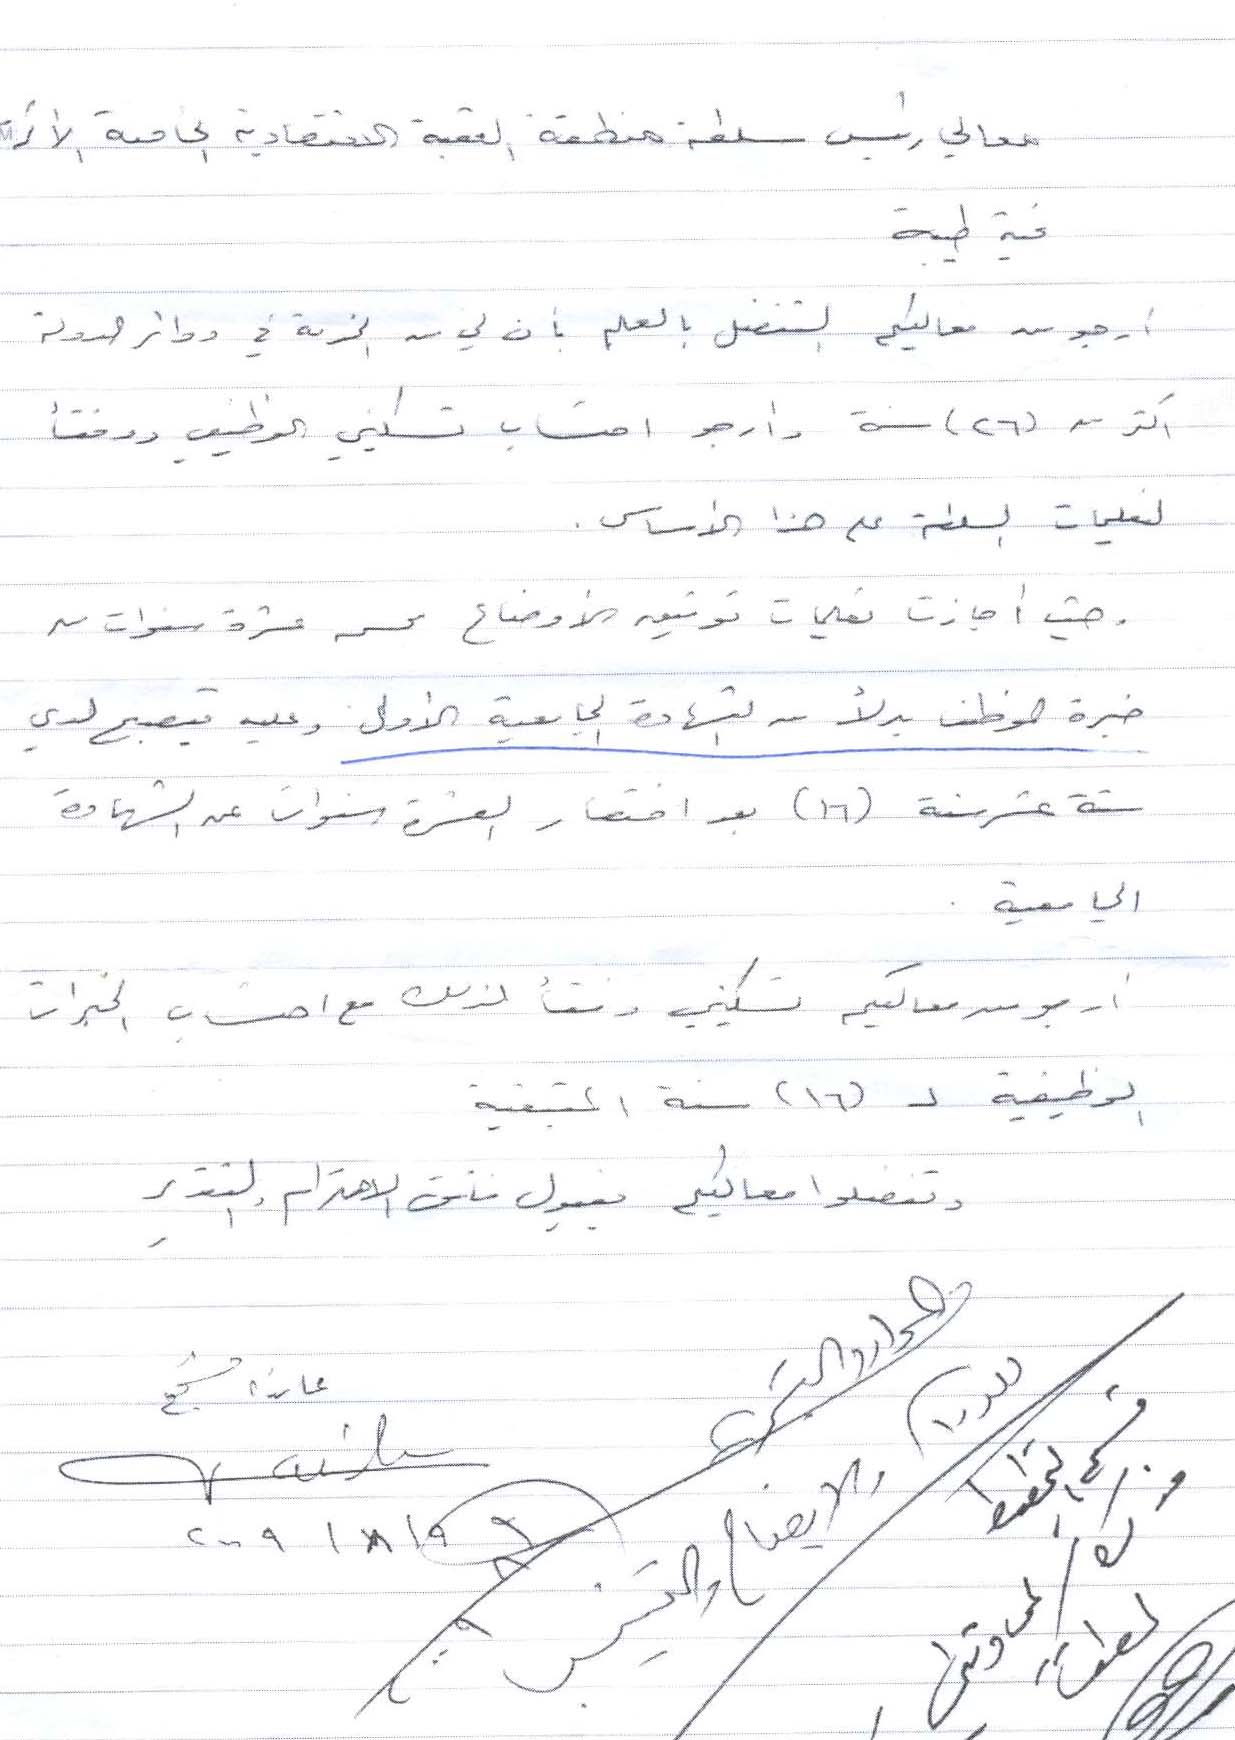 معالي رئيس سلطة منطقة العقبة الاقتصادية الخاصة الأكرم
تحية طيبة
أرجو من معاليكم التفضل بالعلم بأن لي من الخدمة في دوائر الدولة
اكثر من (٢٦) سنة وارجو احتساب تسكيني الوظيفي ووفقاً
لتعليمات السلطة على هذا الأساس .
وحيث أجازت تعليمات توفيق الأوضاع حسم عشرة سنوات من
خبرة الموظف بدلاً من الشهادة الجامعية الأولى وعليه فيصبح لدي
ستة عشر سنة (١٦) بعد اختصار العشرة سنوات عن الشهادة
الجامعية .
أرجو من معاليكم تسكيني وفقاً لذلك مع احتساب الخبرات
الوظيفية لـ (١٦) سنة المتبقية
وتفضلوا معاليكم بقبول فائق الاحترام والتقدير
الموارد البشرية
والايضاح
٢٠٠٩ / ٨ / ١٩